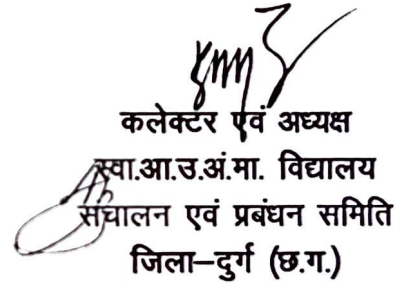 कलेक्टर एवं अध्यक्ष
स्वा.आ.उ.अं.मा. विद्यालय
संचालन एवं प्रबंधन समिति
जिला–दुर्ग (छ.ग.)